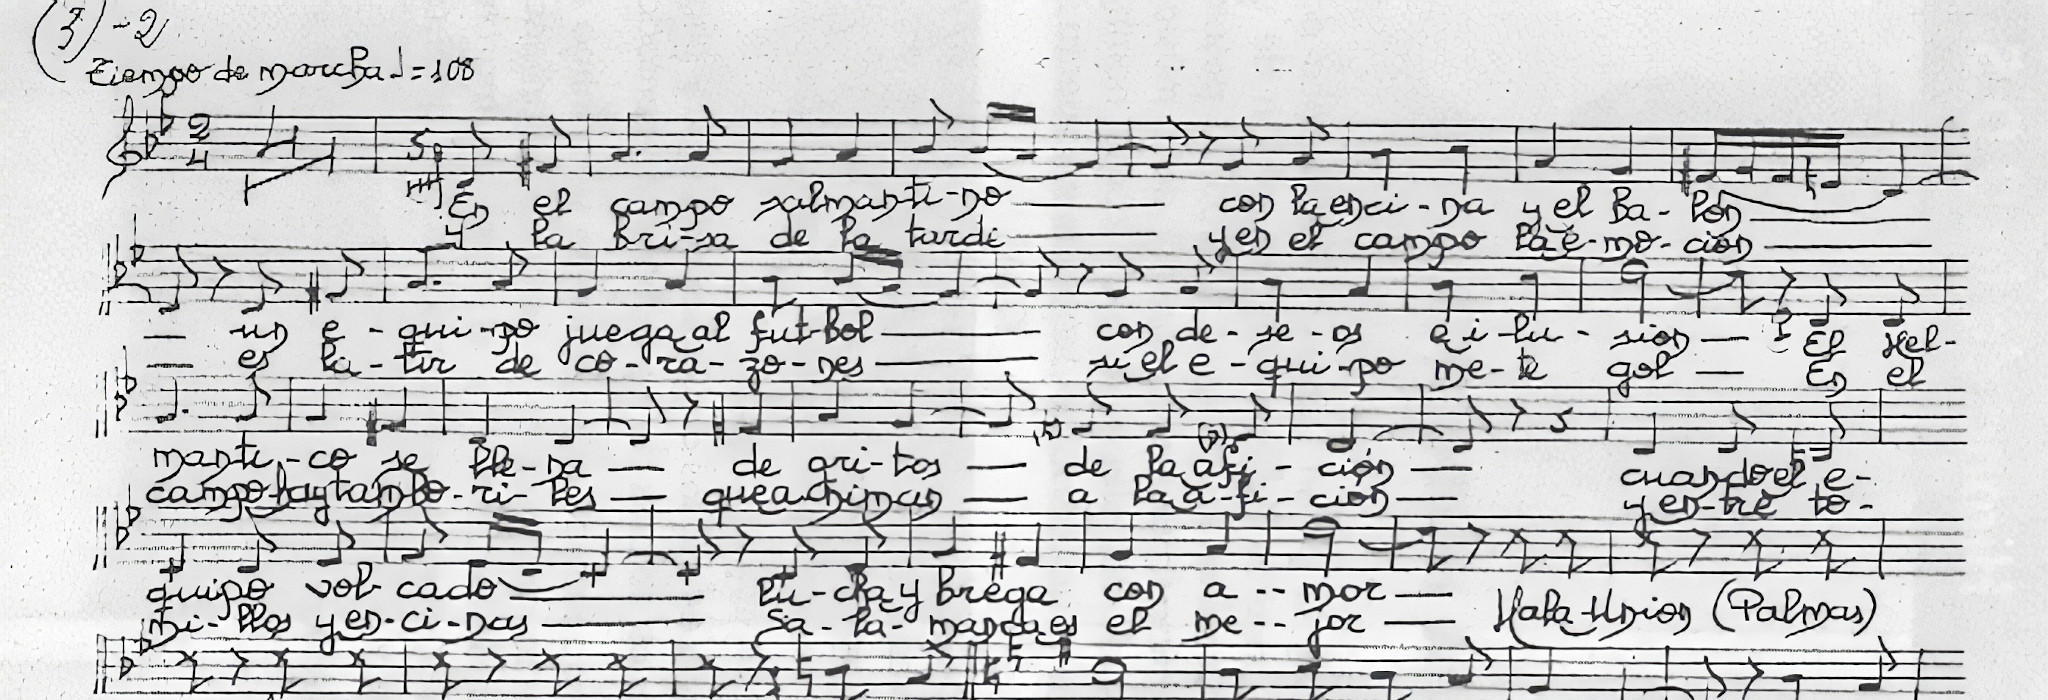 (3)-2
Tiempo de marcha ♩=108
2
4
En el campo salmanti-no con la enci-na y el Ba-lón
y la bri-sa de la tarde y en el campo la e-mo-ción
un e-qui-po juega al fut-bol con de-se-os e i-lu-sión El Hel-
es la-tir de co-ra-zo-nes si el e-qui-po me-te gol En el
manti-co se lle-na de gri-tos de la afi-ción cuando el e-
campo hay tambo-ri-les que animan a la a-fi-ción y en-tre to-
quipo vol-cado lu-cha y brega con a--mor Hala Unión (Palmas)
mi-llos y en-ci-nas Sa-la-manca es el me--jor